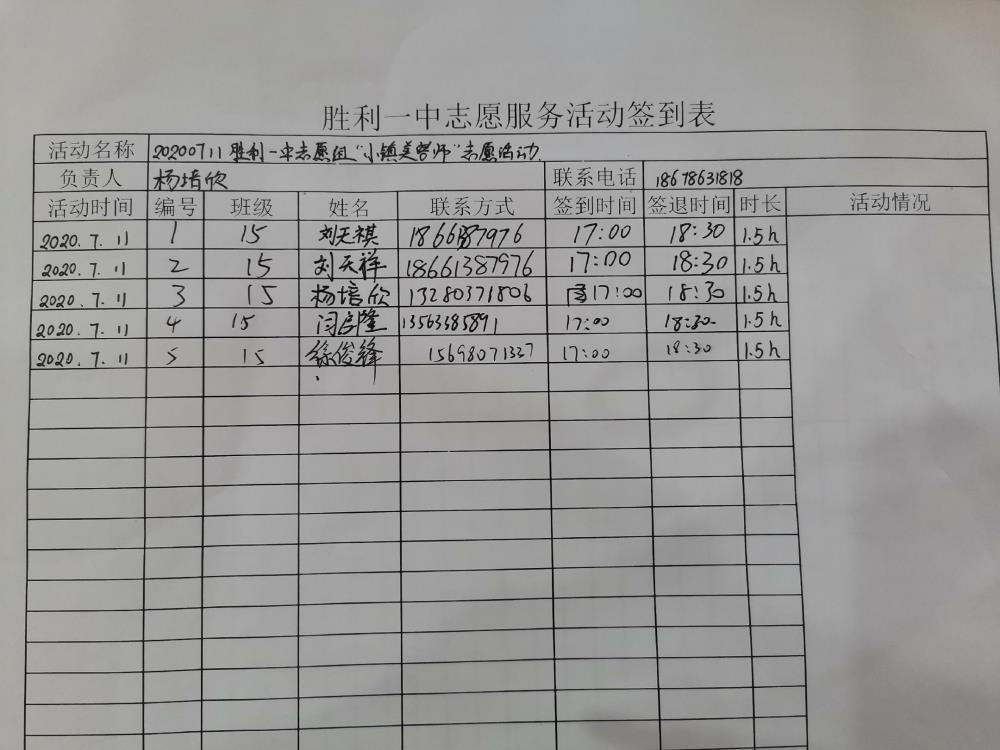 胜利一中志愿服务活动签到表
活动名称 20200711胜利一中志愿组"小镇美容师"志愿活动.
负责人 杨培欣 联系电话 18678631818
活动时间 编号 班级 姓名 联系方式 签到时间 签退时间 时长 活动情况
2020.7.11 1 15 刘天祺 17:00 18:30 1.5h
2020.7.11 2 15 刘天祥 18661387976 17:00 18:30 1.5h
2020.7.11 3 15 杨培欣 13280371806 17:00 18:30 1.5h
2020.7.11 4 15 闫启隆 13563385891 17:00 18:30 1.5h
2020.7.11 5 15 徐俊锋 15698071337 17:00 18:30 1.5h